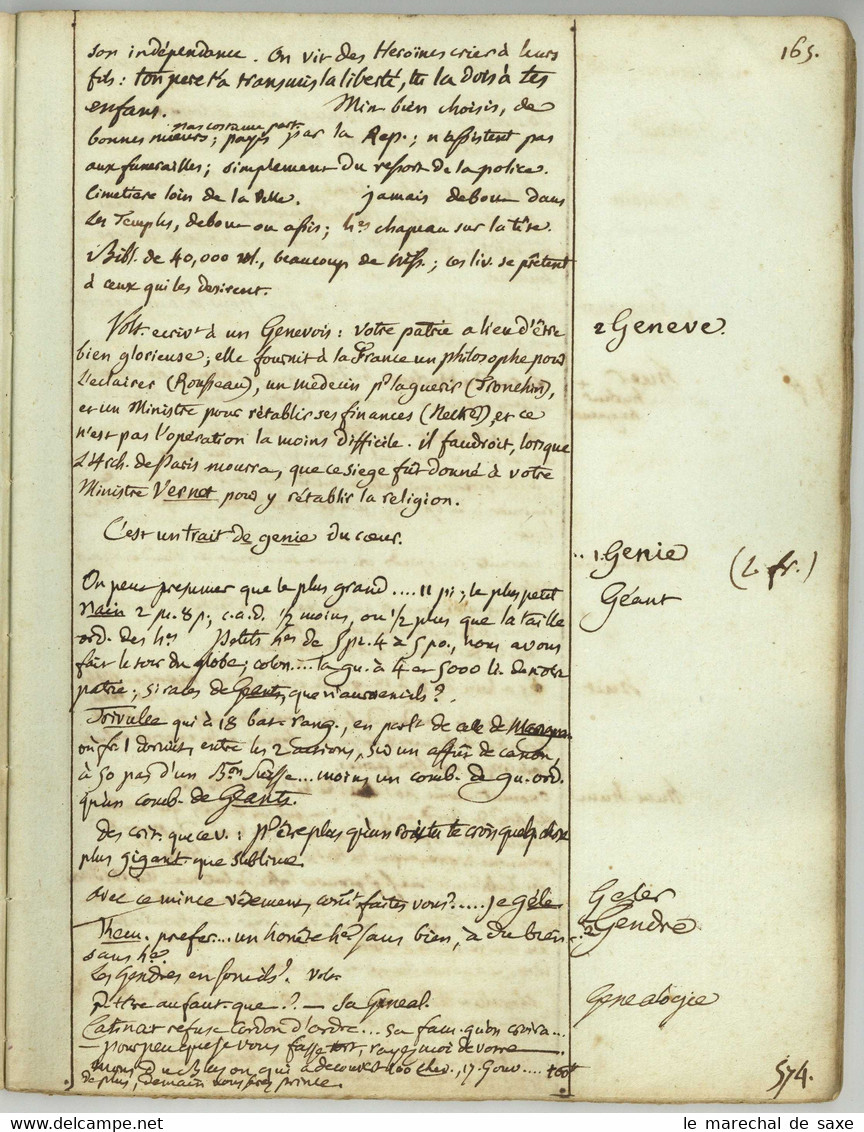 165.
son indépendance. On vit des Heroïnes crier à leurs
fils : ton pere t'a transmis la liberté, tu la dois à tes
enfans. Min. bien choisis, de
bonnes mœurs; payés par la Rep.; n'assistent pas
aux funerailles; simplement du ressort de la police.
Cimetiere loin de la Ville. jamais debout dans
les Temples, debout ou assis; hes chapeau sur la tête.
Bibl. de 40,000 vol., beaucoup de Mss.; ces liv. se prêtent
à ceux qui les desirent.
Volt. ecrivt à un Genevois : votre patrie a lieu d'être
2 Geneve.
bien glorieuse; elle fournit à la France un philosophe pour
l'eclairer (Rousseau), un medecin pr la guerir (Tronchin),
et un Ministre pour rétablir ses finances (Necker), et ce
n'est pas l'opération la moins difficile. il faudroit, lorsque
l'Arch. de Paris mourra, que ce siege fut donné à votre
Ministre Vernet pour y rétablir la religion.
C'est un trait de genie du cœur.
1. Genie (2. fr.)
On peut presumer que le plus grand .... 11 pi; le plus petit
Géant
Nain 2 pi. 8 p; c.a.d. 1/2 moins, ou 1/2 plus que la taille
ord. des hes Petits hes de 5 pi. 4 à 5 po., nous avons
fait le tour du globe; colon.... la gu. à 4 et 5000 li. de notre
patrie; si races de Geants, que n'auroient ils ?
Trivulce qui à 18 bat. rang., en parlt de celle de
où fr. 1 dormit, entre les 2 actions, sur un affut de canon,
à 50 pas d'un Bon Suisse... moins un comb. de gu. ord.
qu'un comb. de Géants.
des ecrit. que cev. : pt être plus qu'un te crois quelq. chose
plus gigant. que sublime.
avec ce mince vêtement, comt faites vous ?..... je gêle
Geler
Them. prefer... un honête he sans bien, à du bien
2 Gendre
sans he.
Les Gendres en sont ils ? Volt.
P. être au faut. que ? — sa Geneal.
Genealogie
Catinat refuse Cordon d'ordre... sa fam. qu'on croira...
— pour peu que je vous fasse tort, rayez moi de votre —
de plus, demain vous serez prince.
574.
le marechal de saxe